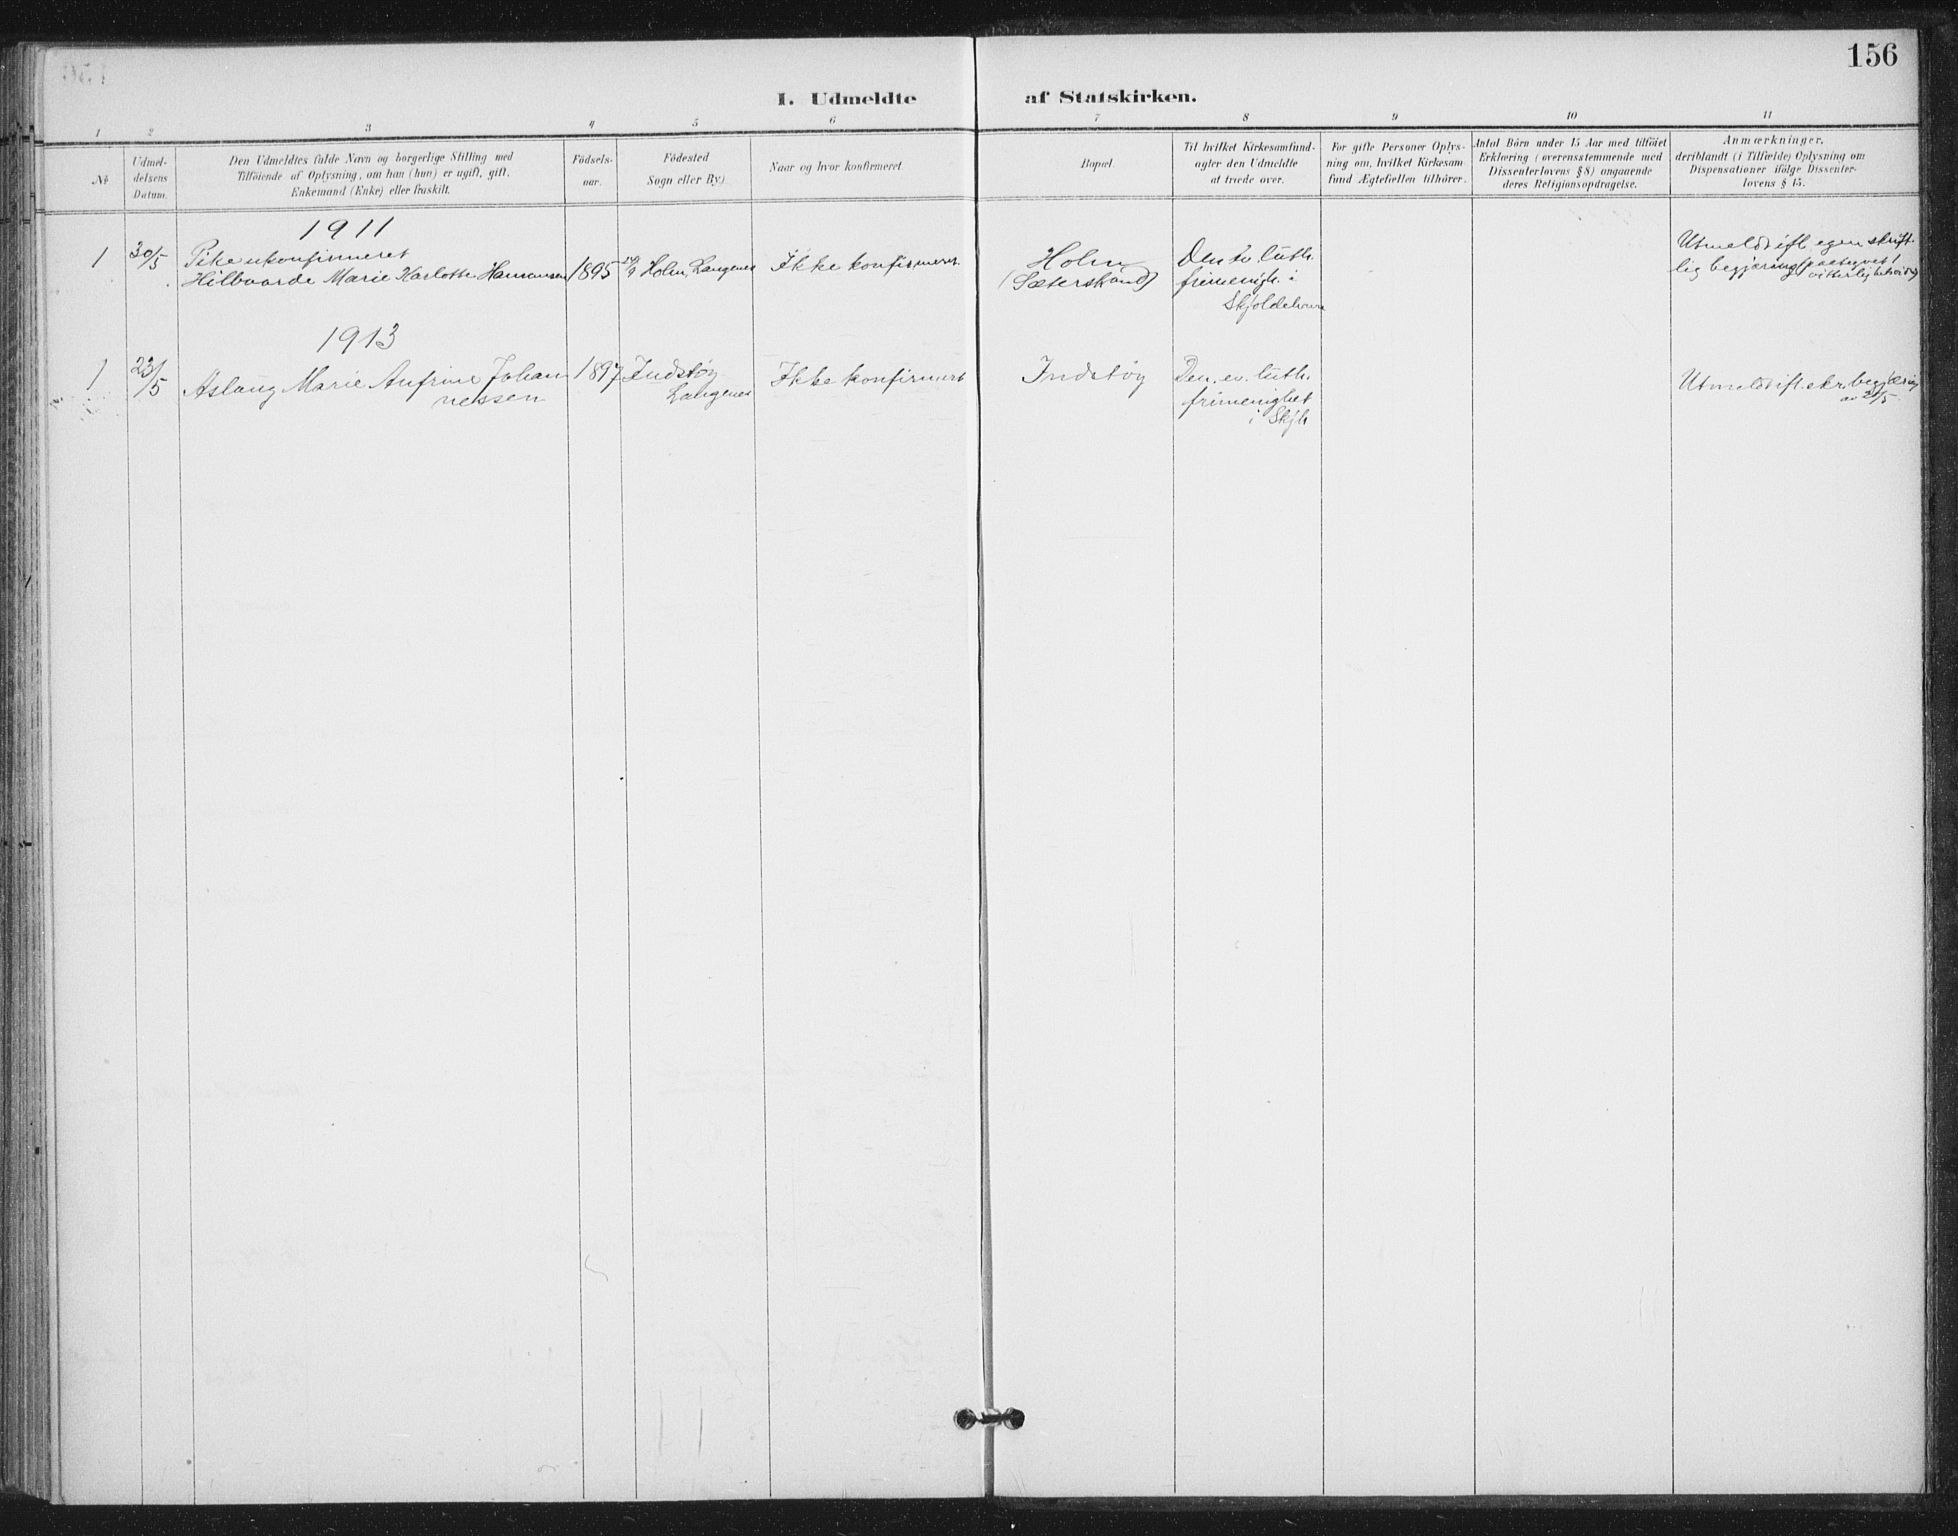 156
I. Udmeldte af Statskirken.
1 2 3 4 5 6 7 8 9 10 11
№
Udmel-
delsens
Datum.
Den Udmeldtes fulde Navn og borgerlige Stilling med
Tilföiende af Oplysning, om han (hun) er ugift, gift,
Enkemand (Enke) eller fraskilt.
Födsels-
aar.
Födested
Sogn eller By)
Naar og hvor konfirmeret.
Bopæl.
Til hvilket Kirkesamfund-
agter den Udmeldte
at træde over.
For gifte Personer Oplys-
ning om, hvilket Kirkesam-
fund Ægtefiellen tilhörer.
Antal Börn under 15 Aar med tilföiet
Erklæring (overensstemmende med
Dissenterlovens § 8) angaaende
deres Religionsopdragelse.
Anmærkninger,
deriblandt (i Tilfælde) Oplysning om
Dispensationer ifölge Dissenter-
lovens § 15.
1911
1
30/5
Pike ukonfirmeret
Hilbaarde Marie Karlotte Hamansen
1895
Holm, Langenes
Ikke konfirmeret.
Holm
(Sæterstrand)
Den ev. luth.
frimenigh. i
Skjoldehavn
Utmeldt ifl. egen skrift-
lig begjæring
1913
1
23/5
Aslaug Marie Anfrine Johan
nessen
1897
Indstøy
Langenes
Ikke konfirmert
Indstøy
Den. ev. luth.
frimenighet
i Skjh
Utmeldt ifl. skr. begjæring
av 21/5.